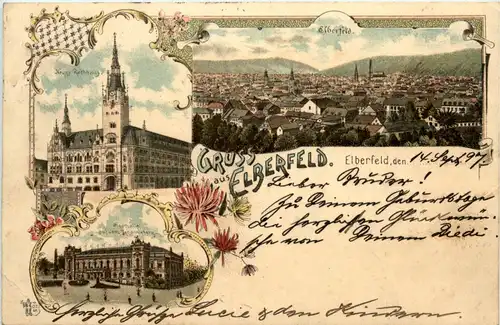 Elberfeld.
Neues Rathaus
GRUSS
aus
ELBERFELD.
Elberfeld, den 14. Sept. 97
Lieber Bruder!
Zu Deinem Geburtstage
die herzlichsten Glückwün
sche von Deinem
Herzliche Grüße Lucie & den Kindern.